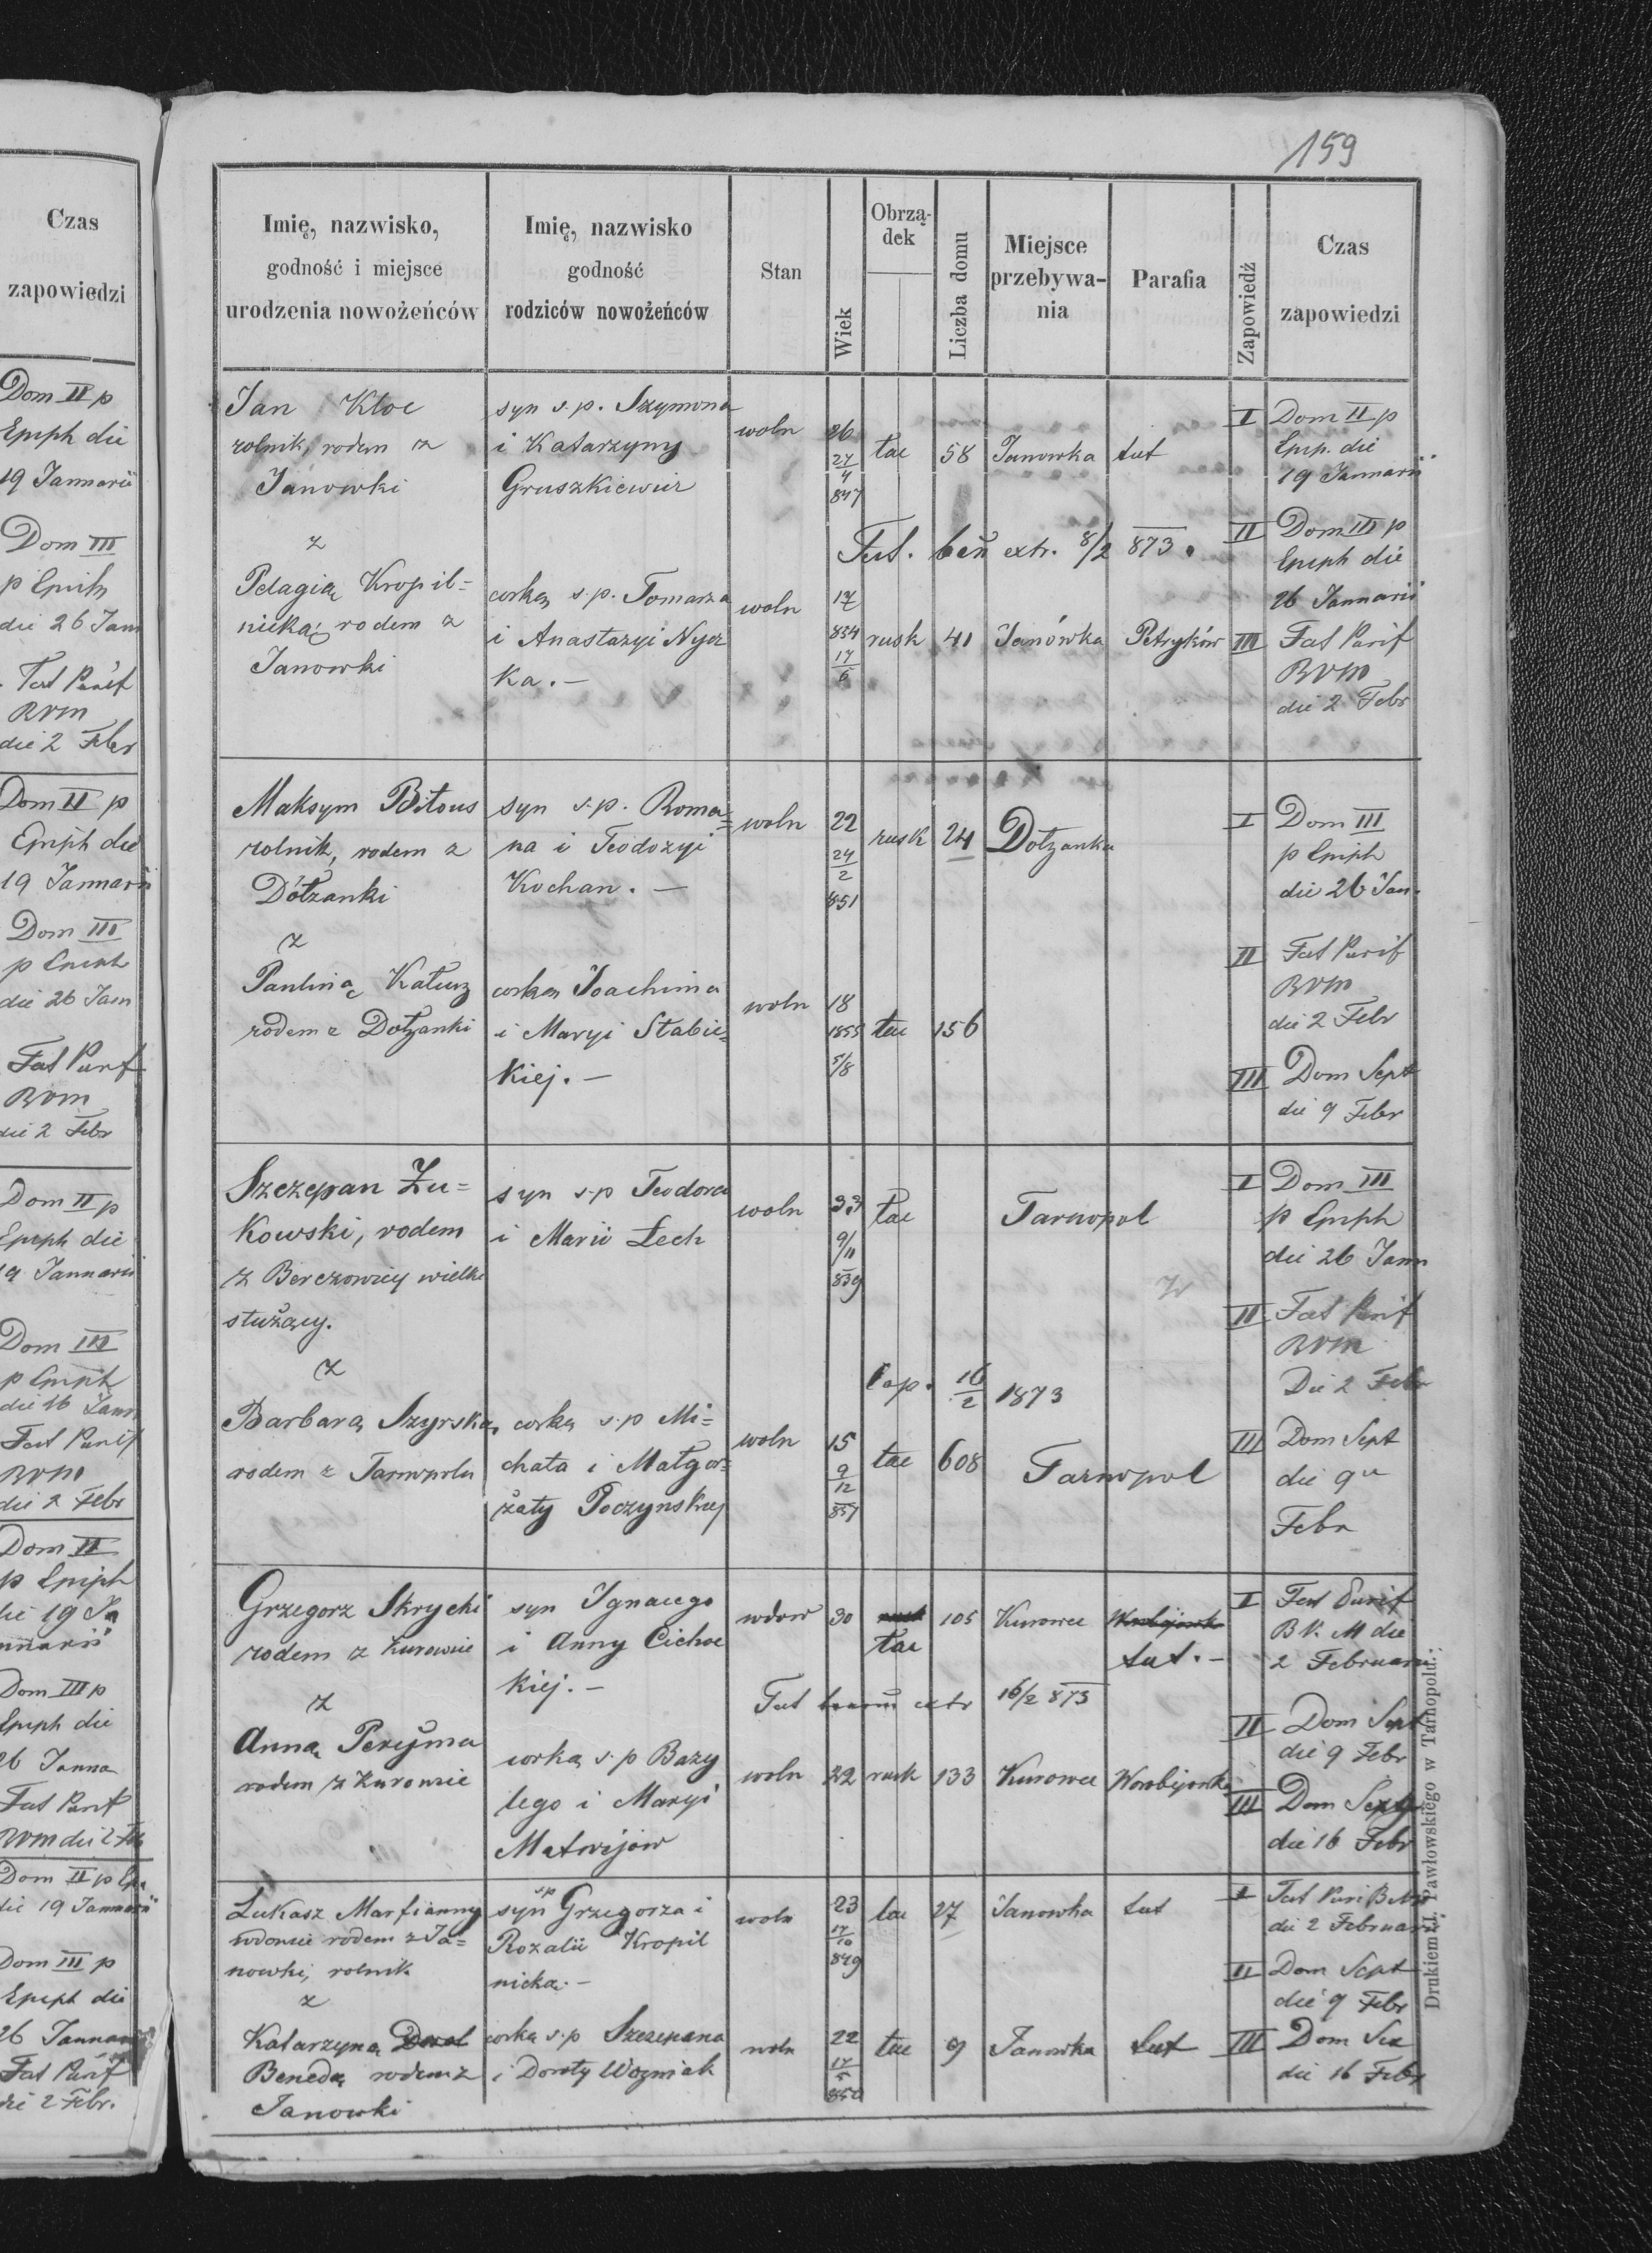 Czas
zapowiedzi
Dom II p
Epiph die
19 Januarii
Dom III
p Epiph
die 26 Jan
Fest Purif
BVM
die 2 Febr
Dom II p
Epiph die
19 Januarii
Dom III
p Epiph
die 26 Jan
Fest Purif
BVM
die 2 Febr
Dom II p
Epiph die
19 Januarii
Dom III
p Epiph
die 26 Jann
Fest Purif
BVM
die 2 Febr
Dom II
p Epiph
die 19 Ja
nuarii
Dom III p
Epiph die
26 Janua
Fest Purif
BVM die 2 Feb
Dom II p Ep.
die 19 Januarii
Dom III p
Epiph die
26 Januar
Fest Purif
die 2 Febr.
159
Imię, nazwisko,
godność i miejsce
urodzenia nowożeńców
Imię, nazwisko
godność
rodziców nowożeńców
Stan
Wiek
Obrzą-
dek
Liczba domu
Miejsce
przebywa-
nia
Parafia
Zapowiedź
Czas
zapowiedzi
Jan Kloc
rolnik, rodem z
Janowki
syn s.p. Szymona
i Katarzyny
Gruszkiewicz
woln
26
27/4
847
łac
58
Janowka
tut
I Dom II p
Epip. die
19 Januarii
Tut. ben extr. 8/2 873.
II Dom III p
Epiph die
26 Januarii
z
Pelagią Kropil=
nicką rodem z
Janowki
corką s.p. Tomasza
i Anastazyi Nycz
ka.-
woln
17
854
17/5
rusk
41
Janówka
Petryków
III Fest Purif
BVM
die 2 Febr
Maksym Biłous
rolnik, rodem z
Dołżanki
syn s.p. Roma=
na i Teodozyi
Kochan. -
woln
22
24/2
851
rusk
24
Dołżanka
I Dom III
p Epiph
die 26 Jan.
z
Pauliną Kałusz
rodem z Dołżanki
corką Joachima
i Maryi Stabic=
kiej. -
woln
18
1855
5/8
łac
156
II Fest Purif
BVM
die 2 Febr
III Dom Sept
die 9 Febr
Szczepan Żu=
kowski, rodem
z Berezowicy wielki
służący.
syn s.p Teodora
i Marii Lech
woln
33
9/11
839
łac
Tarnopol
I Dom III
p Epiph
die 26 Jann
II Fest Purif
BVM
Die 2 Febr
Cop. 16/2 1873
z
Barbarą Szyrską
rodem z Tarnopola
corką s.p Mi=
chała i Małgor=
żaty Poczynskiej
woln
15
9/12
857
łac
608
Tarnopol
III Dom Sept
die 9a
Febr
Grzegorz Skrycki
rodem z Kurowiec
syn Ignacego
i Anny Cichoc
kiej. -
wdow
30
rusk
łac
105
Kurowce
Worobijowka
tut. -
I Fest Purif
BV. M die
2 Februarii
Tut extr 16/2 873
z
Anną Perejma
rodem z Kurowiec
corką s.p Bazy
lego i Maryi
Matwijów
woln
22
rusk
133
Kurowce
Worobijowka
II Dom Sept
die 9 Febr
III Dom Sexg
die 16 Febr
Łukasz Marfianny
wdowiec rodem z Ja=
nowki, rolnik
s.p
syn Grzegorza i
Rozalii Kropil
nicka. -
woln
23
17/10
849
łac
27
Janowka
tut
I Fest Puri BVM
die 2 Februarii
II Dom Sept
die 9 Febr
z
Katarzyną
Benedą rodem z
Janowki
corką s.p Szczepana
i Doroty Wozniak
woln
22
17/5
850
łac
9
Janowka
tut
III Dom Sex
die 16 Febr
Drukiem J. Pawłowskiego w Tarnopolu.